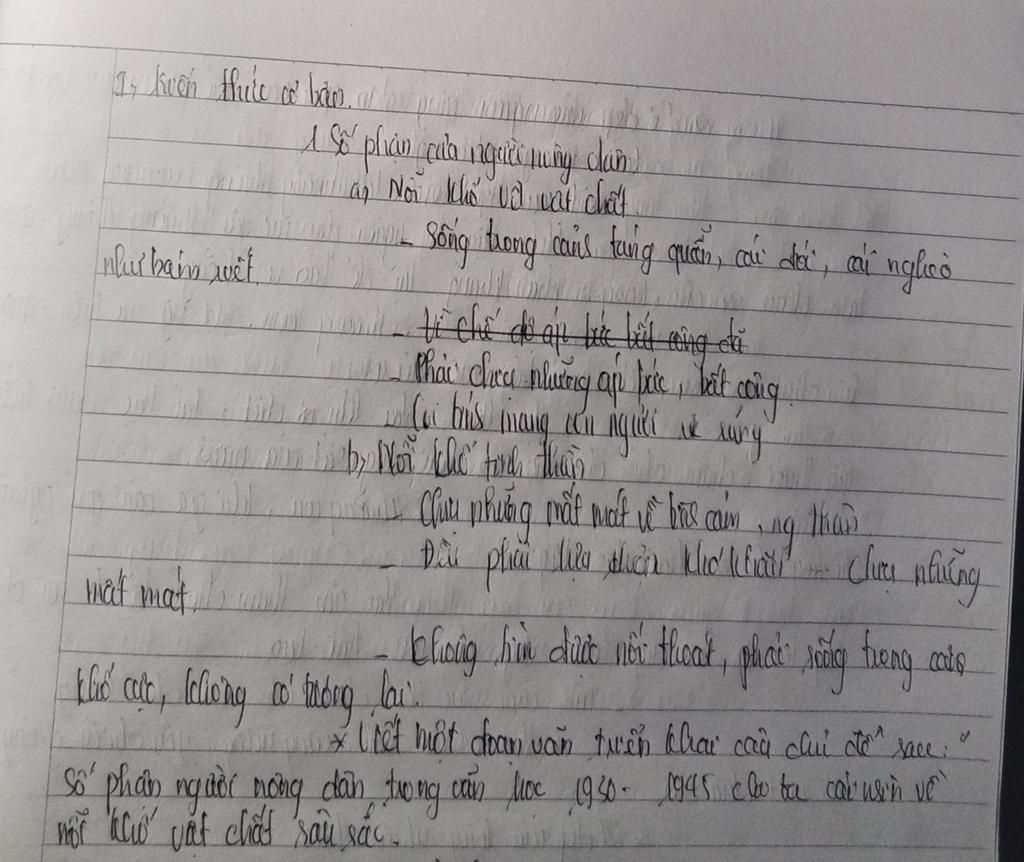 I, Kiến thức cơ bản.
1 Số phận của người nông dân
a, Nỗi khổ về vật chất
- Sống trong cảnh túng quẫn, cái đói, cái nghèo
như bám riết.
- từ chế độ áp bức bất công đã
- Phải chịu những áp bức, bất công.
người
b, Nỗi khổ tinh thần
- Chịu những mất mát về tình cảm, ng thân
- Đều phải lựa chọn khó khăn chịu những
mất mát.
- không tìm được nối thoát, phải sống trong cảnh
khổ cực, không có tương lai.
* Viết một đoạn văn triển khai câu chủ đề sau: "
Số phận người nông dân trong văn học 1930 - 1945 cho ta cái nhìn về
nỗi khổ vật chất sâu sắc.